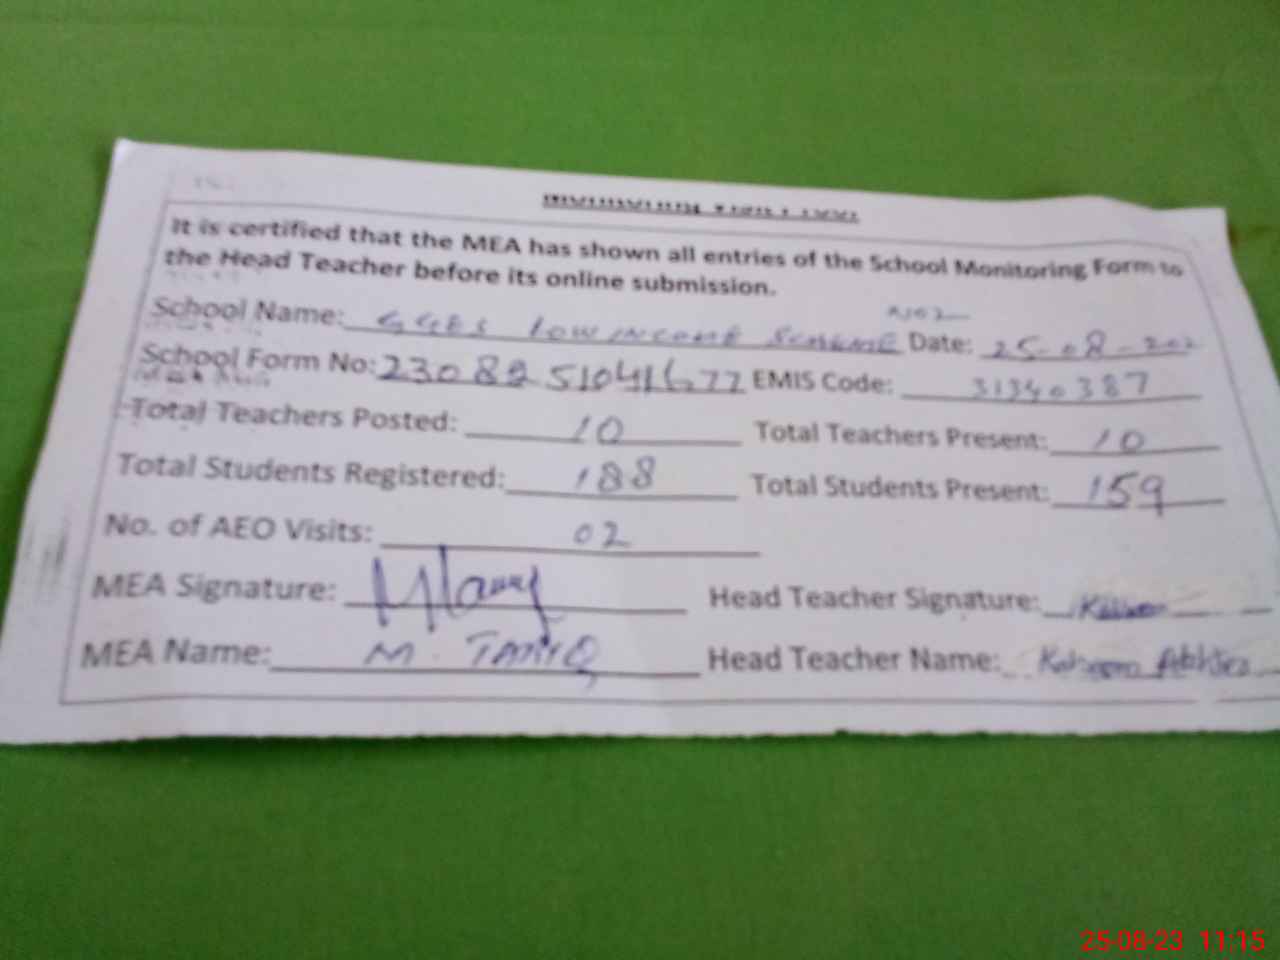 It is certified that the MEA has shown all entries of the School Monitoring Form to
the Head Teacher before its online submission.
School Name: GGES LOW INCOME SCHEME Date: 25-08-202
School Form No: 23082 51041677 EMIS Code: 31340387
Total Teachers Posted: 10 Total Teachers Present: 10
Total Students Registered: 188 Total Students Present: 159
No. of AEO Visits: 02
MEA Signature: Head Teacher Signature:
MEA Name: M. TARIQ Head Teacher Name:
25-08-23 11:15